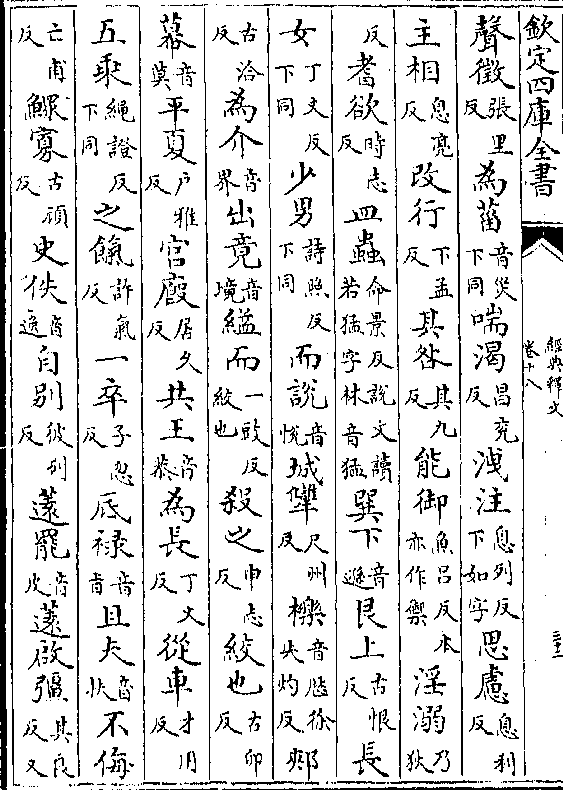 欽定四庫全書
經典釋文
卷十八
聲徵張里反為菑音災下同喘渴昌兖反洩注息列反下如字思慮息利反
主相息亮反改行下孟反其咎其九反能御魚呂反本亦作禦淫溺乃狄
反耆欲時志反皿蟲命景反說文讀若猛字林音猛巽下音遜艮上古恨反長
女丁丈反下同少男詩照反下同而說音悅城犨尺州反櫟音歷徐失灼反郟
古洽反為介音界出竟音境縊而一豉反絞也殺之申志反絞也古卯反
幕音莫平夏户雅反官廏居又反共王音恭為長丁丈反從車才用反
五乘繩證反下同之餼許氣反一卒子忽反底禄音旨且夫音扶不侮
亡甫反鰥寡古頑反史佚音逸自別彼列反薳罷音皮薳啟彊其良反又